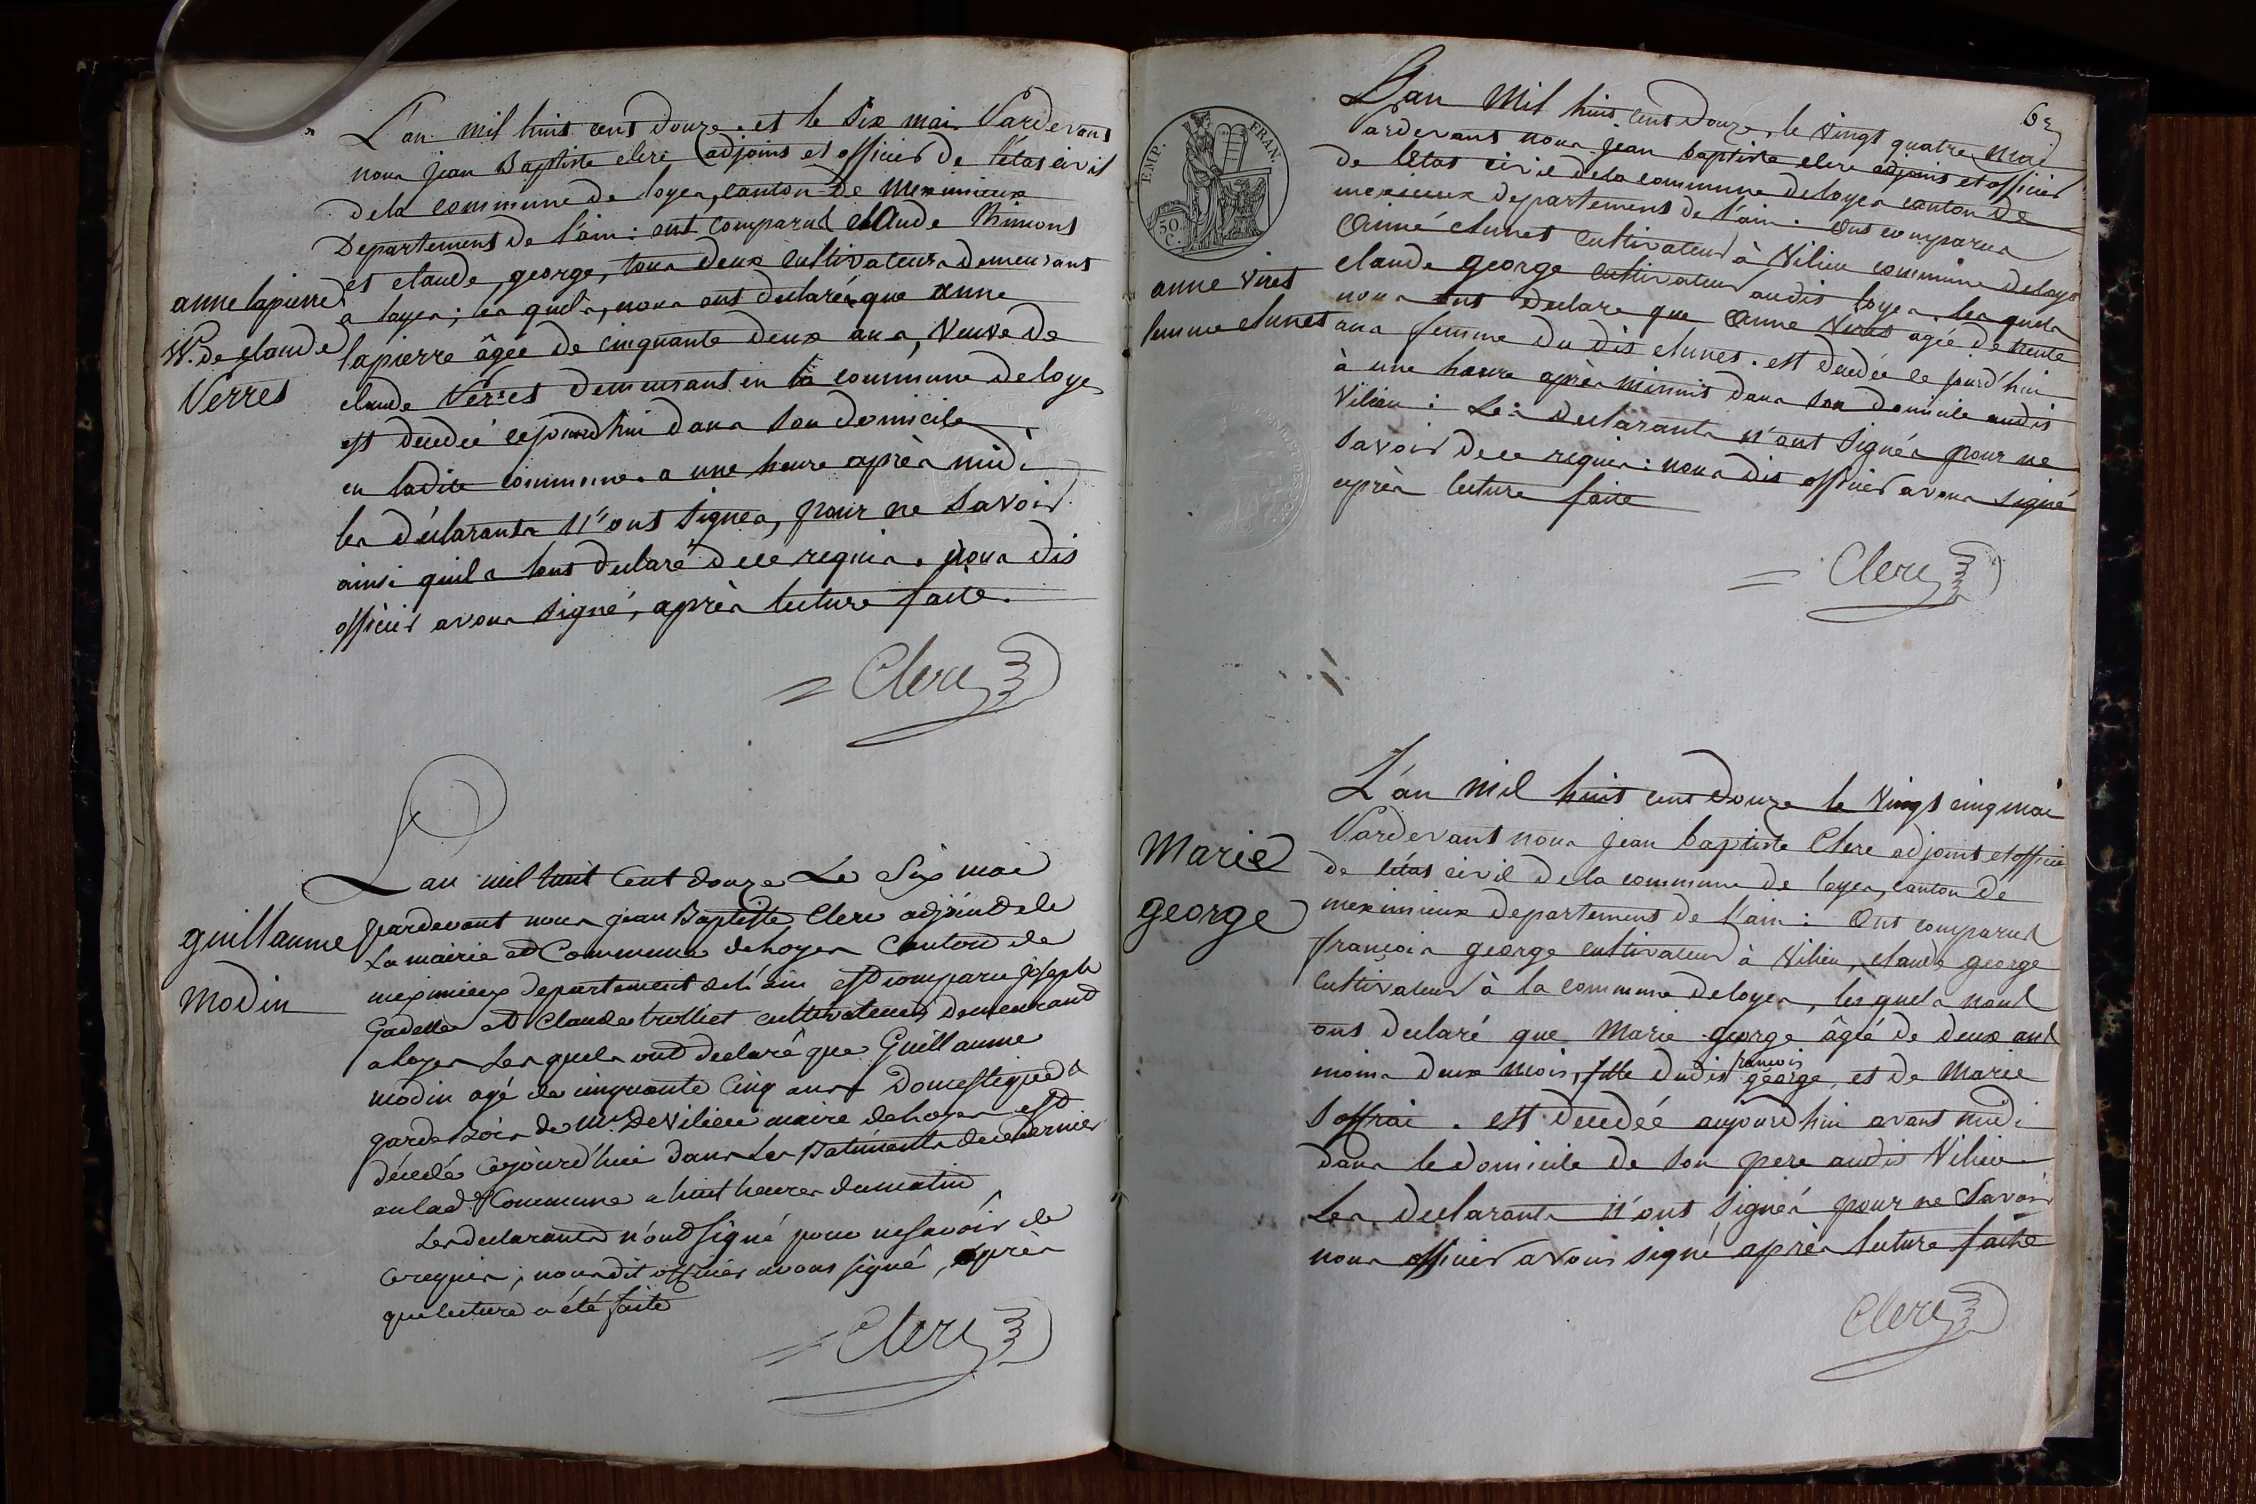 L'an mil huit cent douze. et le Six mai Pardevant
nous jean Baptiste clerc adjoint et officier de l'etat civil
dela commune de loyes, canton de Meximieux
Departement de l'ain : ont comparus claude Thimont
et claude george, tous deux cultivateurs demeurant
a loyes ; les quels, nous ont declaré que anne
lapierre âgée de cinquante deux ans, Veuve de
claude Verres demeurant en la commune de loyes
est decedeé cejourd'hui dans son domicile
en ladite commune. a une heure après midi
les déclarants n'ont signés, pour ne savoir
ainsi quils lont declaré de ce requis. nous dit
officier avons signé, après lecture faite.
Clerc
anne lapierre
Ve. de claude
Verres
L'an mil huit Cent douze Le Six mai
pardevant nous jean Baptiste Clerc adjoint de
La mairie et Commune de Loyes Canton de
meximieux departement de l'ain est comparu joseph
et Claude trolliet cultivateurs Demeurant
a loyes Les quels ont declaré que Guillaume
modin agé de cinquante Cinq ans Domestique et
garde bois de Mr. DeVilieu maire de Loyes est
décedé cejourd'hui dans Les Batiments de ce dernier
en lad. Commune a huit heures du matin
Les declarants n'ont signé pour ne savoir de
ce requis ; nous dit officier avons signé, après
que lecture a été faite
Clerc
guillaume
modin
62
EMP. FRAN.
50 C.
L'an Mil huit cent Douze, le vingt quatre mai
Pardevant nous jean baptiste clerc adjoint et officier
de l'état civil dela commune de loyes canton de
meximieux departement de l'ain. Ont comparus
Aimé chunet cultivateur à Vilieu commune de loyes
claude george cultivateur audit loyes. les quels
nous ont declaré que Anne Viret agée de trente
ans femme du dit chunet. est decedée ce jourd'hui
à une heure après minuit dans son domicile audit
Vilieu : Les declarants n'ont signés pour ne
savoir de ce requis : nous dit officier avons signé
après lecture faite
Clerc
anne Viret
femme chunet
L'an mil huit cent Douze le vingt cinq mai
Pardevant nous jean baptiste Clerc adjoint et officier
de l'état civil dela commune de loyes, canton de
meximieux departement de l'ain : Ont comparus
françois george cultivateur à Vilieu, claude george
cultivateur à la commune de loyes, les quels nous
ont declaré que Marie george âgée de deux ans
moins deux mois, fille dudit francois george, et de Marie
Soffrai. est decedeé aujourdhui avant midi
dans le domicile de son pere audit Vilieu
Les declarants n'ont signés pour ne savoir
nous officier avons signé après lecture faite
Clerc
Marie
george